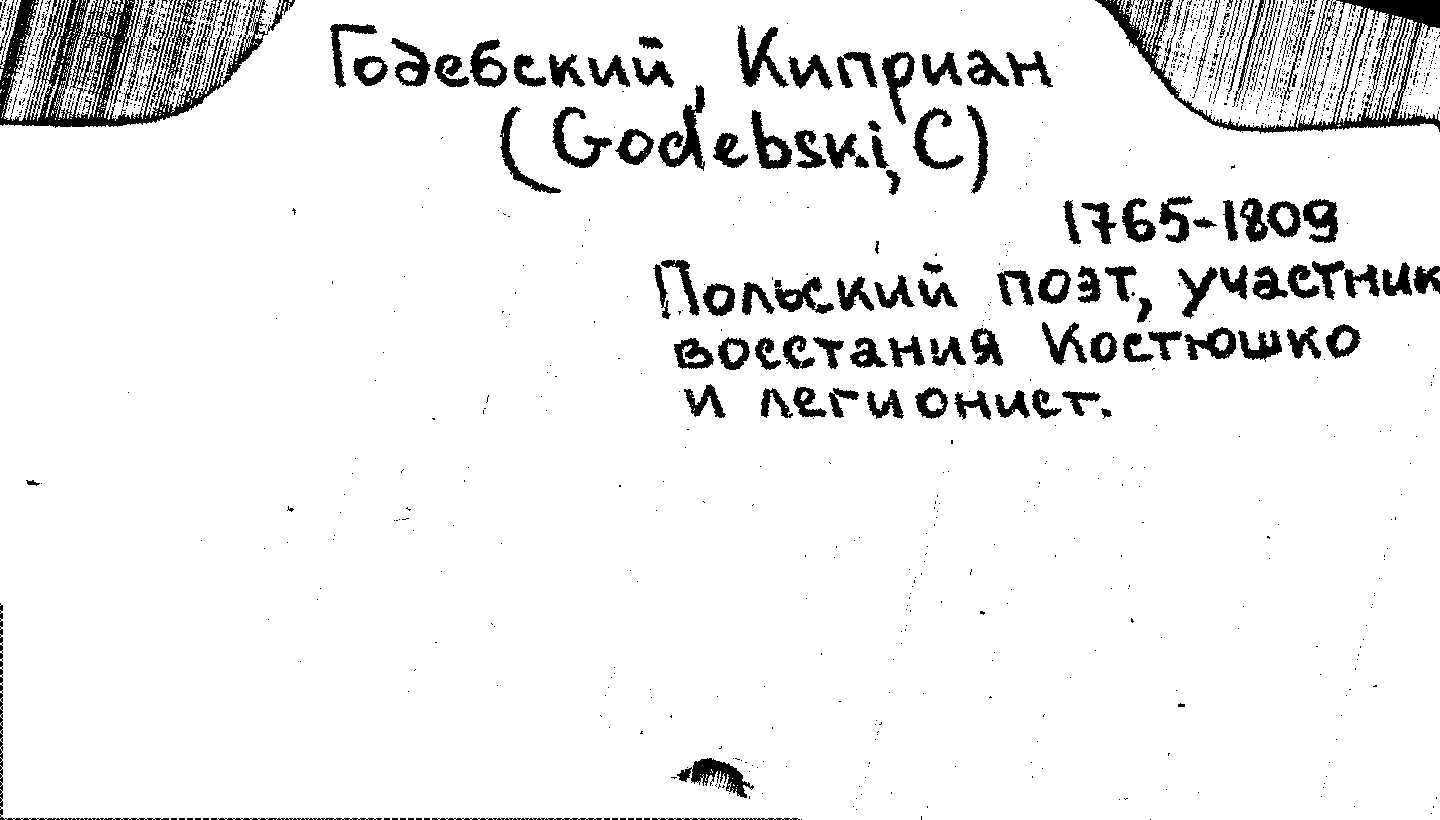 Годебский, Киприан
(Godebski, C)
1765-1809
Польский поэт, участник
восстания Костюшко
и легионист.